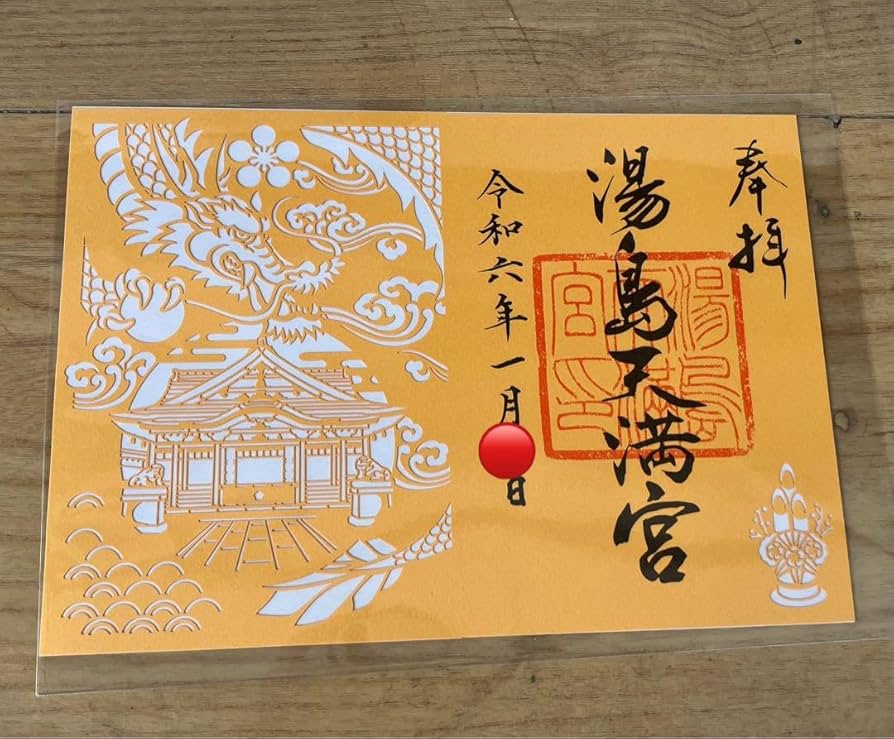 奉拝
湯島天満宮
湯島天満宮印
令和六年一月 日